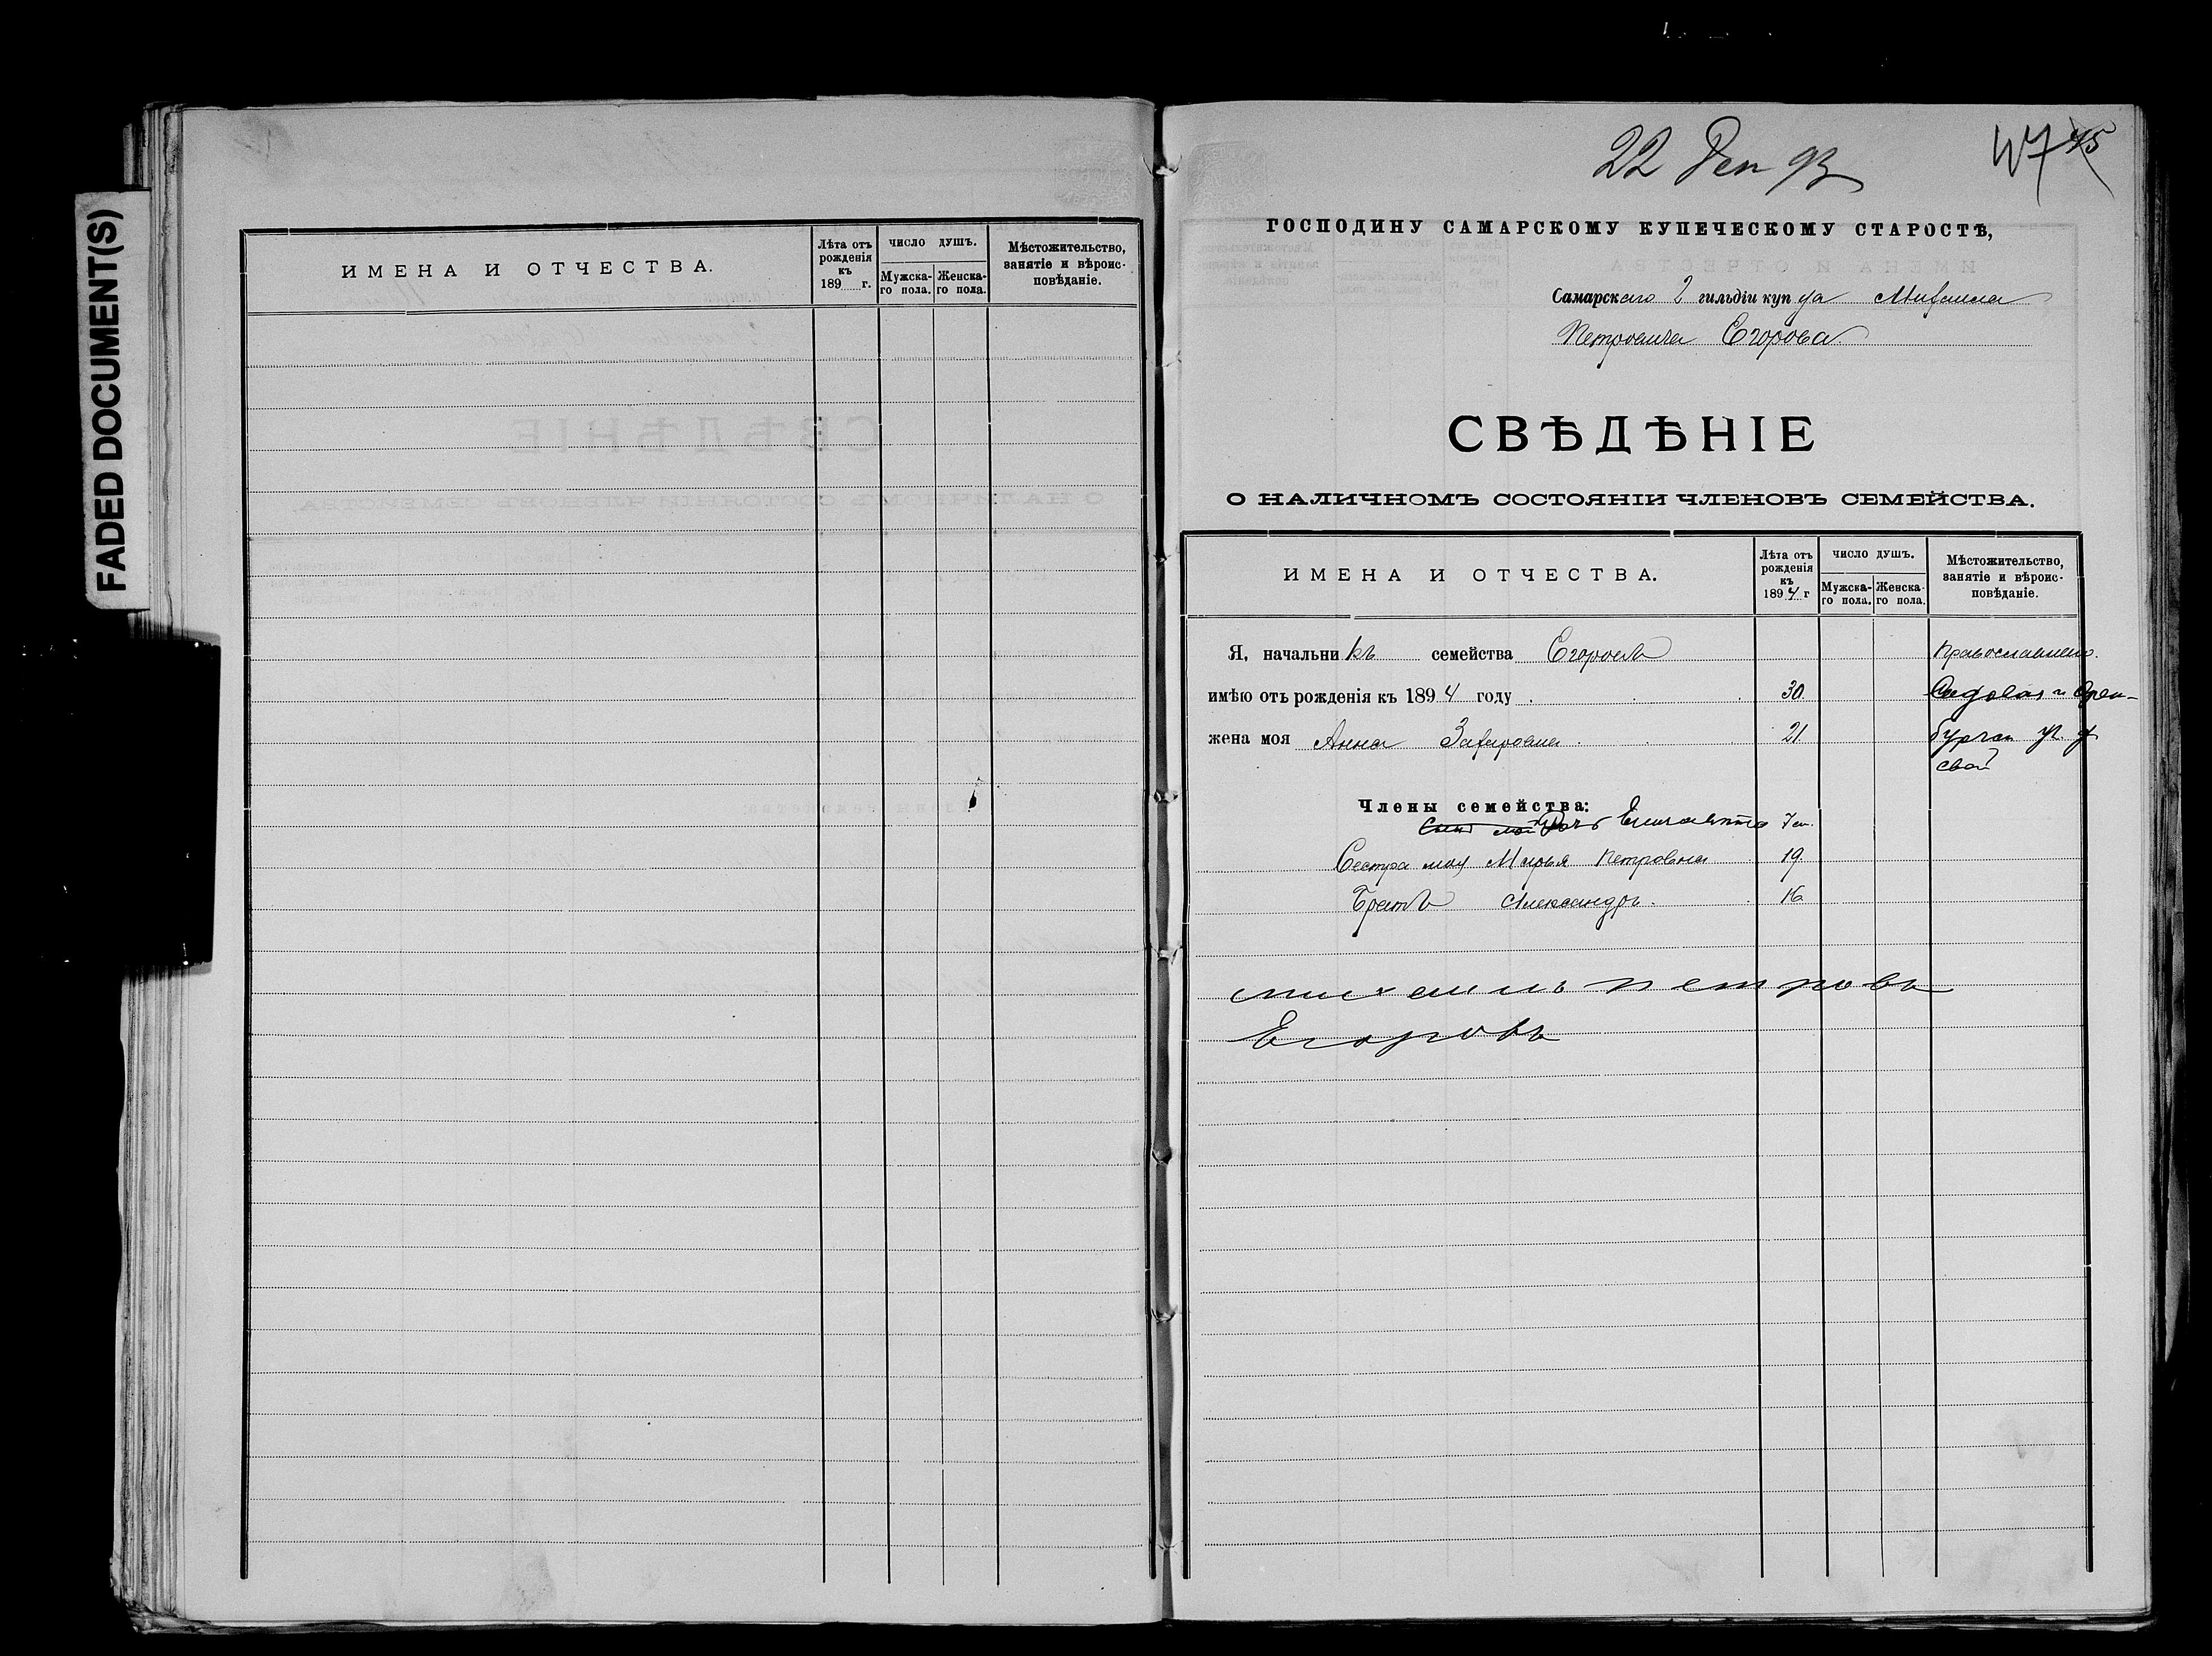 FADED DOCUMENT(S)
ИМЕНА И ОТЧЕСТВА.
Лѣта отъ рожденія къ 189 г.
число душъ.
Мужска-го пола.
Женска-го пола.
Мѣстожительство, занятіе и вѣроис-повѣданіе.
22 Дек 93
47 45
ГОСПОДИНУ САМАРСКОМУ КУПЕЧЕСКОМУ СТАРОСТѢ,
Самарскаго 2 гильдіи купца Михаила
Петровича Егорова
СВѢДѢНІЕ
О НАЛИЧНОМЪ СОСТОЯНІИ ЧЛЕНОВЪ СЕМЕЙСТВА.
ИМЕНА И ОТЧЕСТВА.
Лѣта отъ рожденія къ 1894 г
число душъ.
Мужска-го пола.
Женска-го пола.
Мѣстожительство, занятіе и вѣроис-повѣданіе.
Я, начальникъ семейства Егоровъ Православнаго.
имѣю отъ рожденія къ 1894 году 30. Садовая и Орен-
жена моя Анна Захаровна 21. бургск уг. д
свой
Члены семейства:
Сынъ мой Дочь Елисавѣта 7 м.
Сестра моя Марья Петровна 19.
Братъ Александръ. 16
Михаилъ Петровъ
Егоровъ